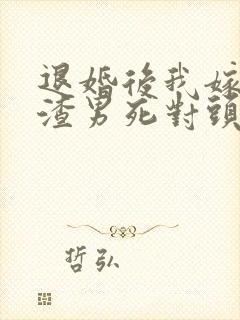 退婚後我嫁
渣男死對頭
哲弘